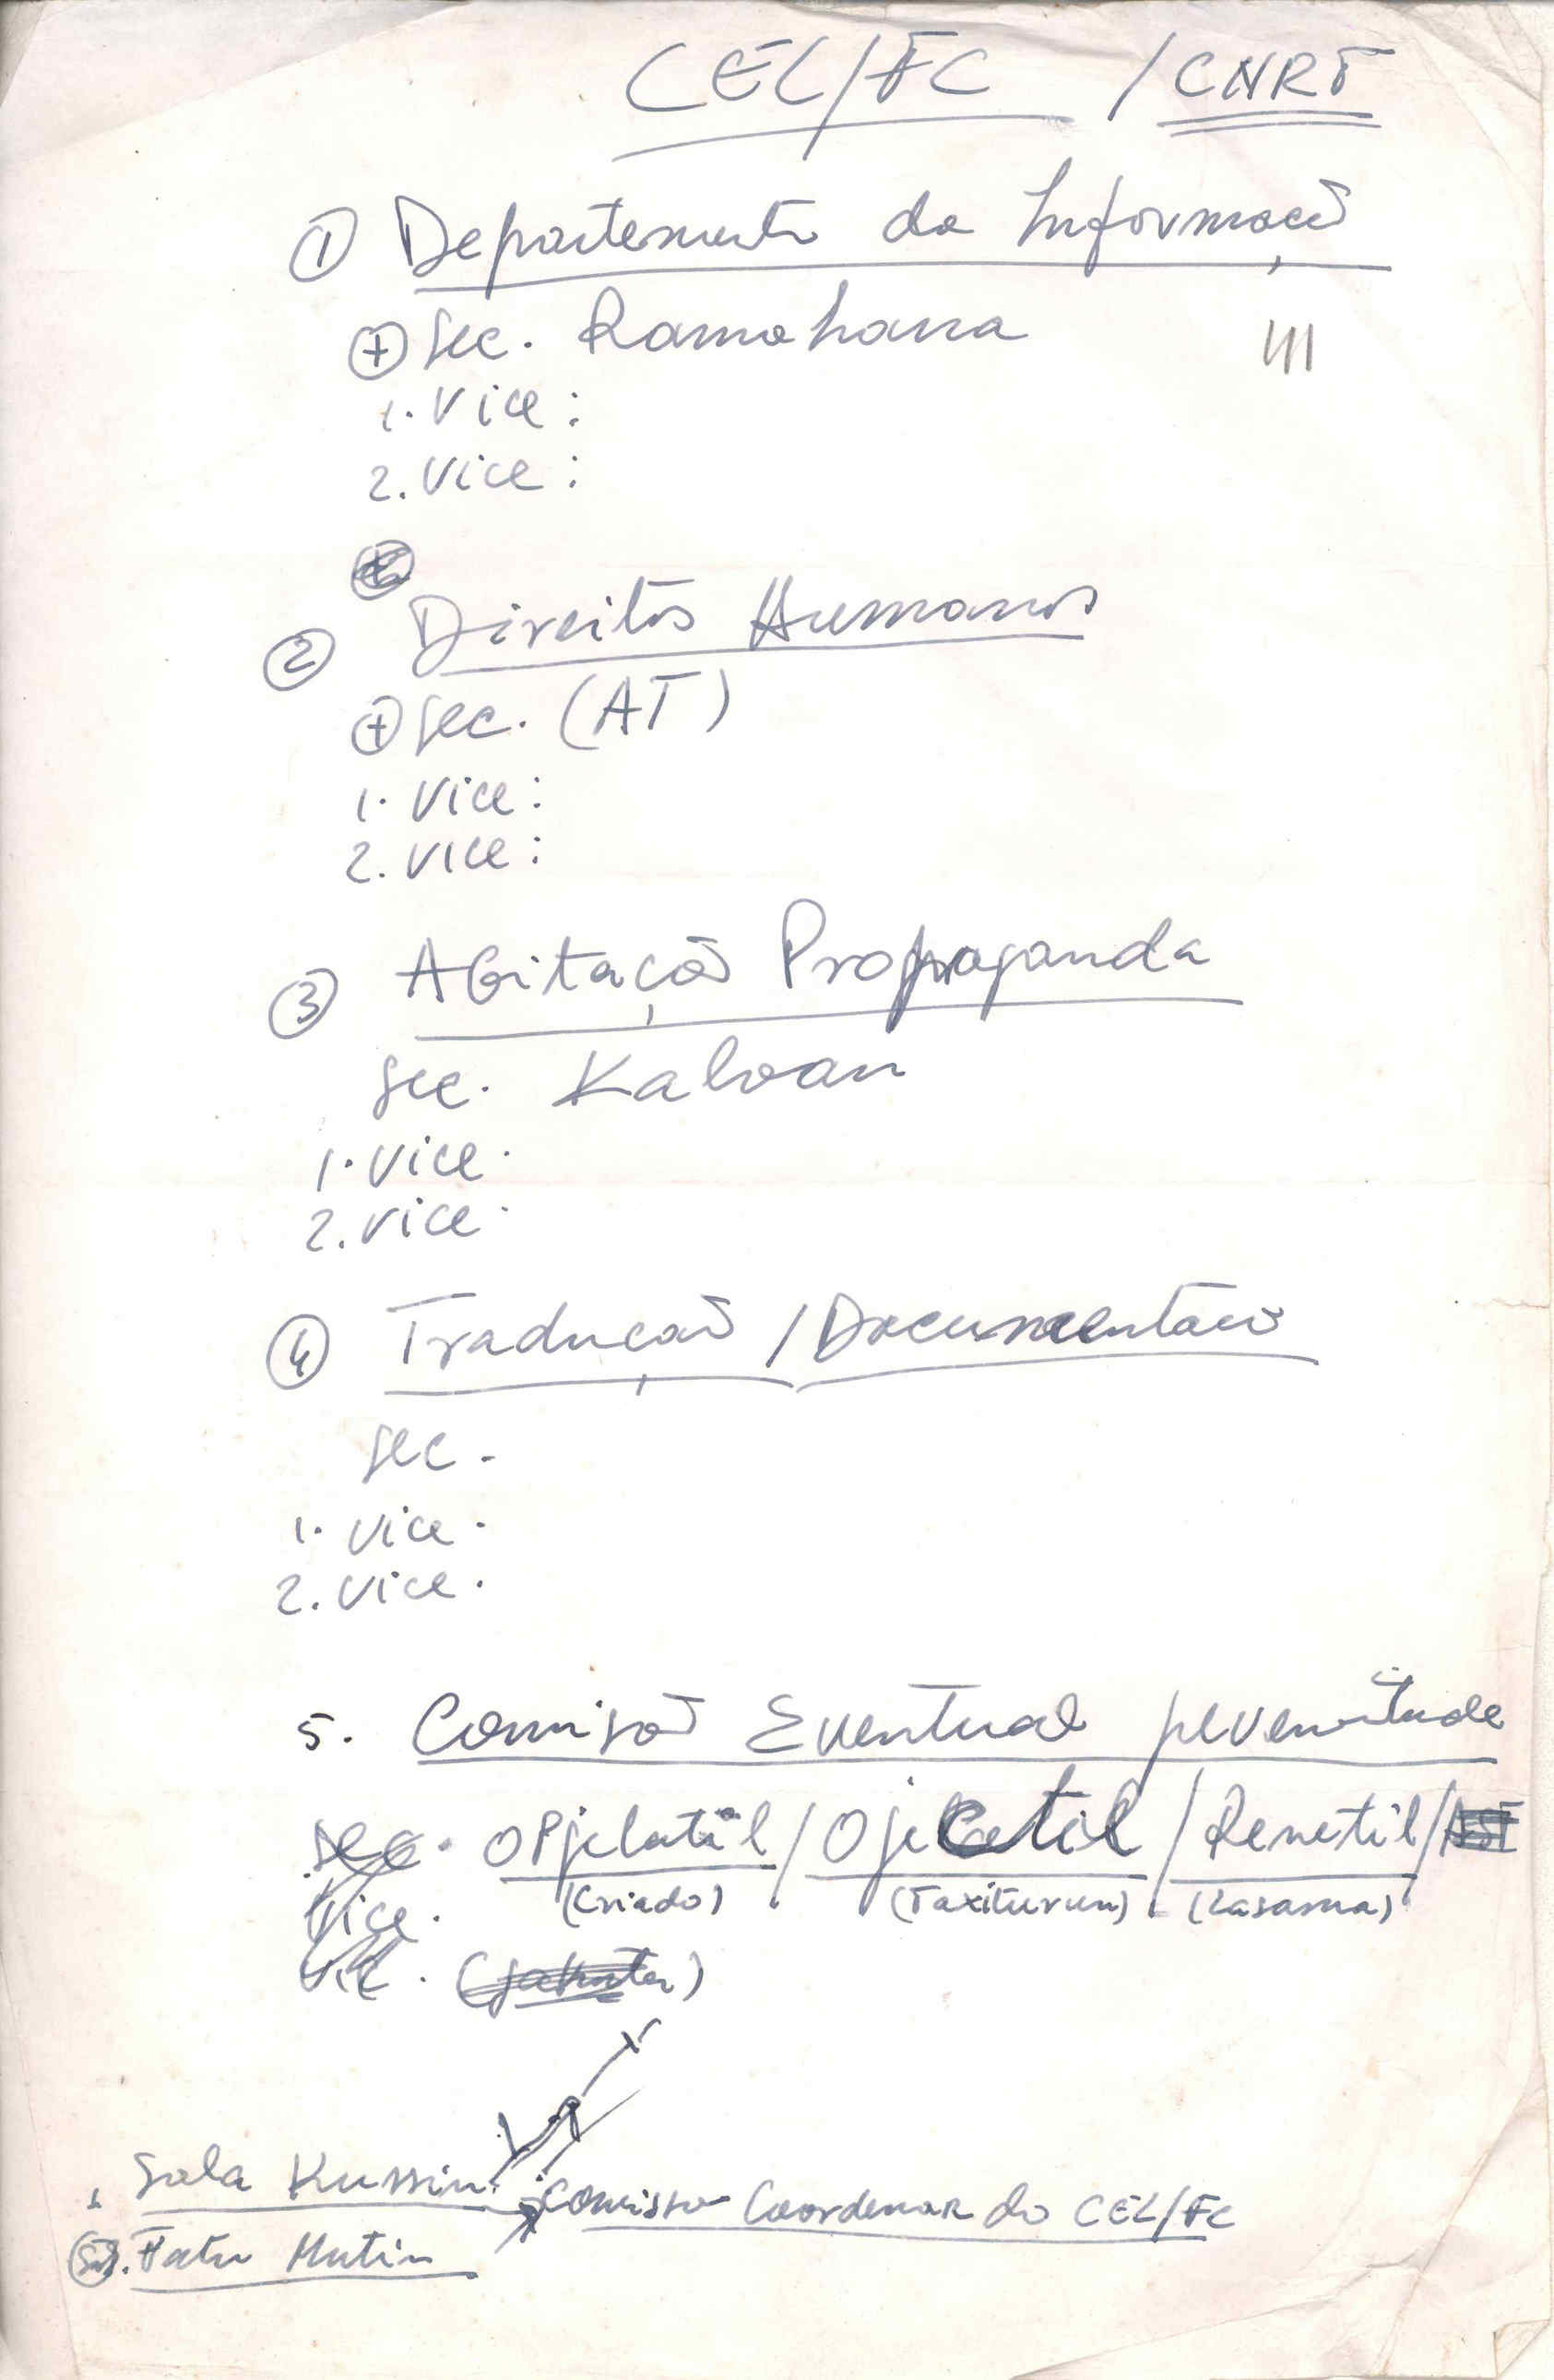 CEL/FC / CNRT
① Departemento da Informacã
+ Sec. Ramahana
1. Vice :
2. Vice :
② Direitos Humanos
+ Sec. (AT)
1. Vice :
2. Vice :
③ AGitação Propaganda
Sec. Kaloan
1. Vice .
2. Vice .
④ Traduçaõ / Documentacaõ
Sec .
1. Vice .
2. Vice .
5. Comisaõ Eventual
Sec . OPjelatil / Ojecetil / Renetil /
(Criado) (Taxiturun) (Lasama)
Vice .
Vic .
1. Sala Kussin
Comisso Coordenar do CEL/FC
Fatu Mutin